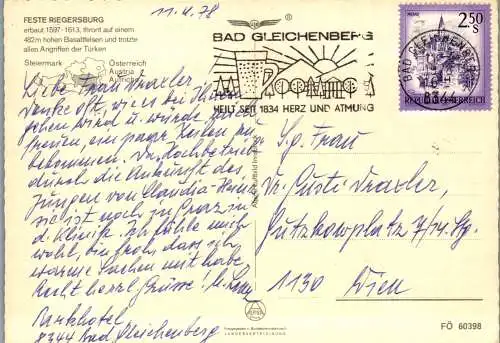 FESTE RIEGERSBURG
erbaut 1597-1613, thront auf einem
482m hohen Basaltfelsen und trotzte
allen Angriffen der Türken
Steiermark
Österreich
Austria
Autriche
11.4.78
BAD GLEICHENBERG
HEILT SEIT 1834 HERZ UND ATMUNG
BAD GLEICHENBERG
8344
2.50
S
REPUBLIK ÖSTERREICH
Liebe Frau Draxler
Denke oft, wie es bei Ihnen
gehen wird u. würde mich
freuen, ein paar Zeilen zu
bekommen. Der Hochbetrieb
durch die Ankunft des
Jungen von Claudia
sie ist noch in Graz in
d. Klinik. Ich fühle mich
wohl, bin froh, dass ich
warme Sachen mit habe
Recht herzl. Grüsse
Parkhotel
8344 Bad Gleichenberg
S.g. Frau
Dr. Gusti Draxler
Gutzkowplatz 7/14. Stg.
1130 Wien
FÖ 60398